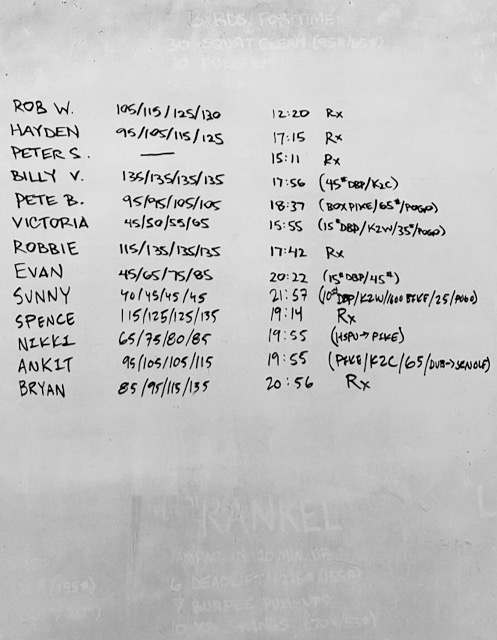 3 RDS FOR TIME
30 SQUAT CLEAN (95#/65#)
30 PULL-UPS
ROB W. 105/115/125/130 12:20 Rx
HAYDEN 95/105/115/125 17:15 Rx
PETER S. — 15:11 Rx
BILLY V. 135/135/135/135 17:56 (45# DBP/K2C)
PETE B. 95/95/105/105 18:37 (BOX PIKE/65#/POGO)
VICTORIA 45/50/55/65 15:55 (15# DBP/K2W/35#/POGO)
ROBBIE 115/135/135/135 17:42 Rx
EVAN 45/65/75/85 20:22 (15# DBP/45#)
SUNNY 40/45/45/45 21:57 (10# DBP/K2W/1100 BIKE/25/POGO)
SPENCE 115/125/125/135 19:14 Rx
NIKKI 65/75/80/85 19:55 (HSPU→PIKE)
ANKIT 95/105/105/115 19:55 (PIKE/K2C/65/DUB→SINGLE)
BRYAN 85/95/115/135 20:56 Rx
"RANKEL
AMRAP IN 20 MIN OF
6 DEADLIFT (225#/155#)
7 BURPEE PULL-UPS
10 KB SWINGS (70#/53#)